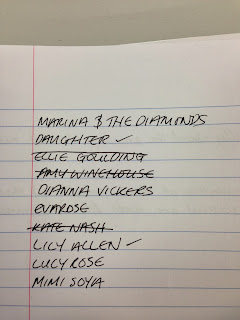 MARINA & THE DIAMONDS
DAUGHTER ✓
ELLIE GOULDING
AMY WINEHOUSE
DIANNA VICKERS
EVAROSE
KATE NASH
LILY ALLEN ✓
LUCY ROSE
MIMI SOYA